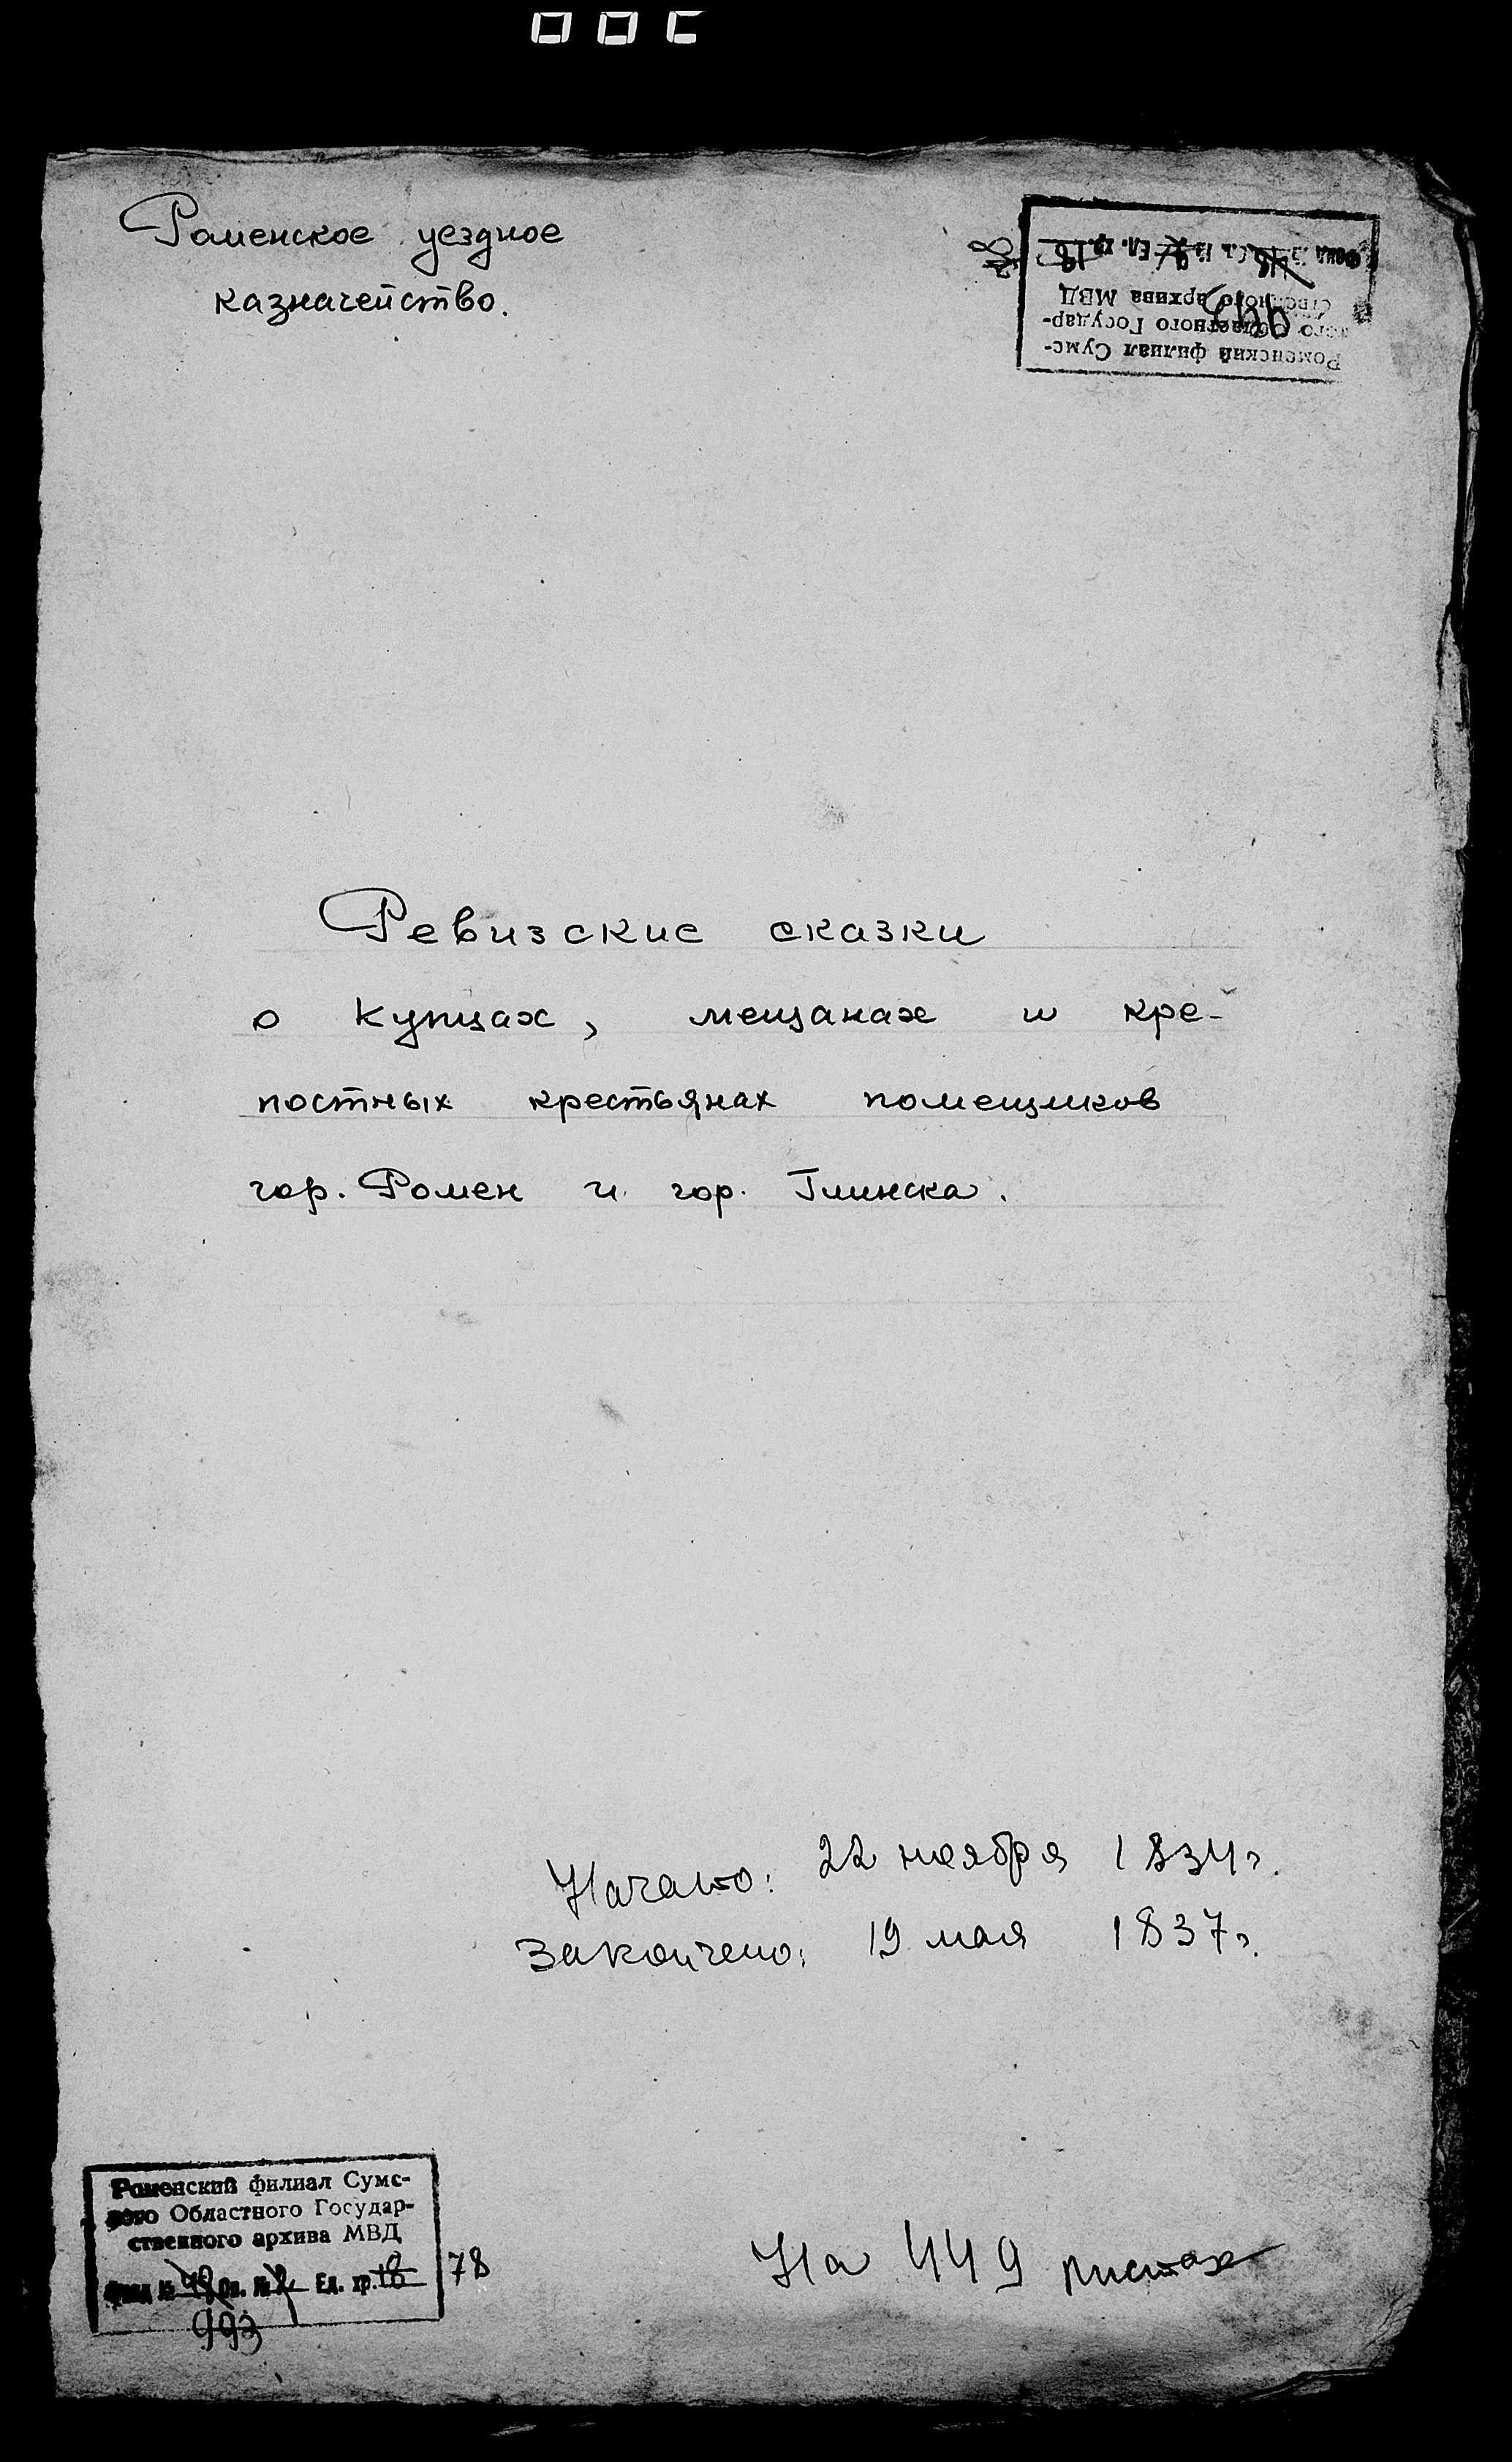 Роменское уездное
казначейство.
Роменский филиал Сумс-
кого Областного Государ-
ственного архива МВД
Ревизские сказки
о купцах, мещанах и кре-
постных крестьянах помещиков
гор. Ромен и гор. Глинска.
Начато: 22 ноября 1834 г.
Закончено: 19 мая 1837 г.
Роменский филиал Сумс-
кого Областного Государ-
ственного архива МВД
Фонд № Оп. № Ед. хр. 18 78
993
На 449 листах